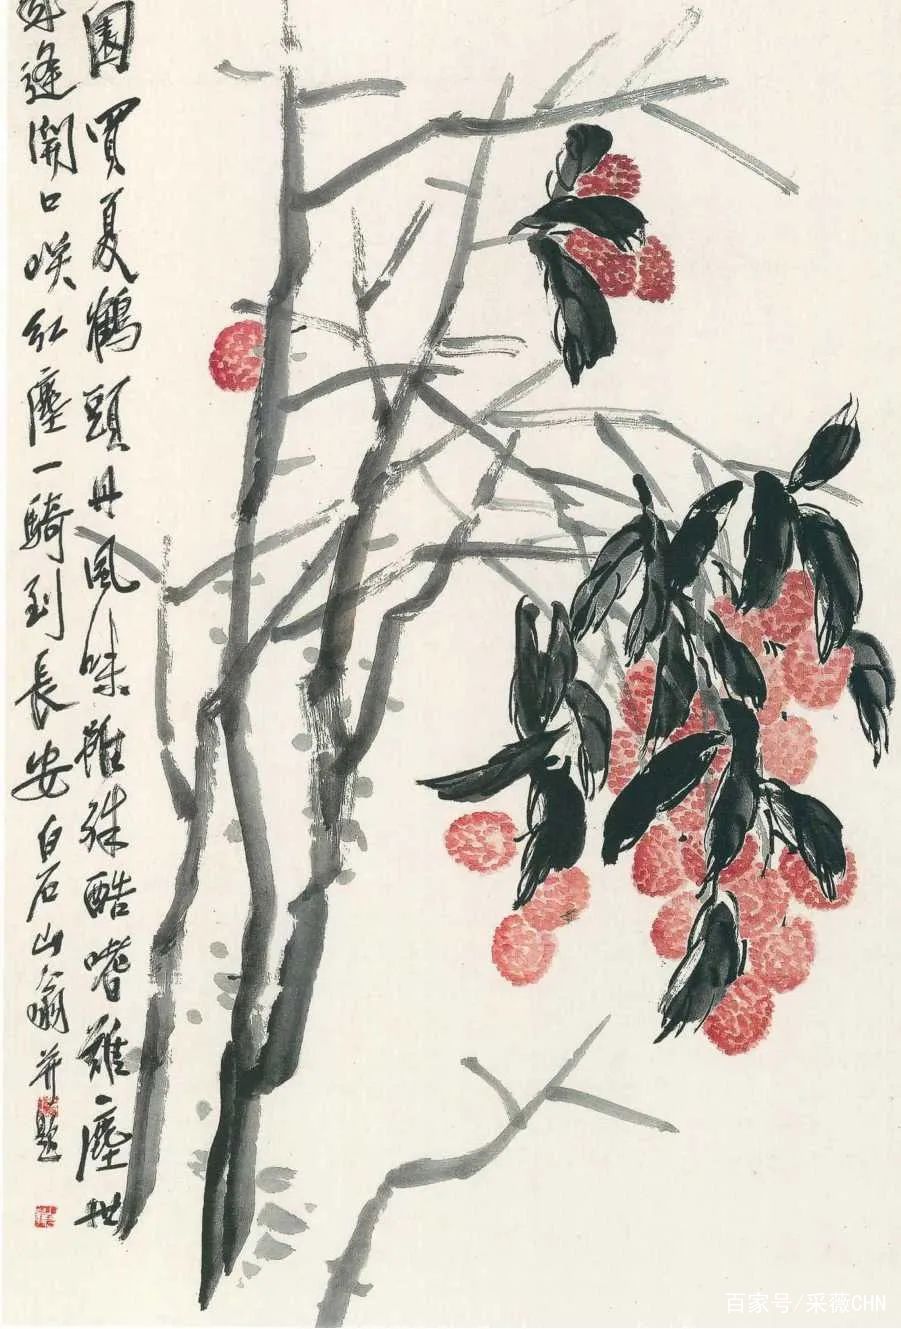 園買夏鶴頭丹風味雖殊酷嗜難塵世
逢開口咲紅塵一騎到長安白石山翁并題
百家号/采薇CHN